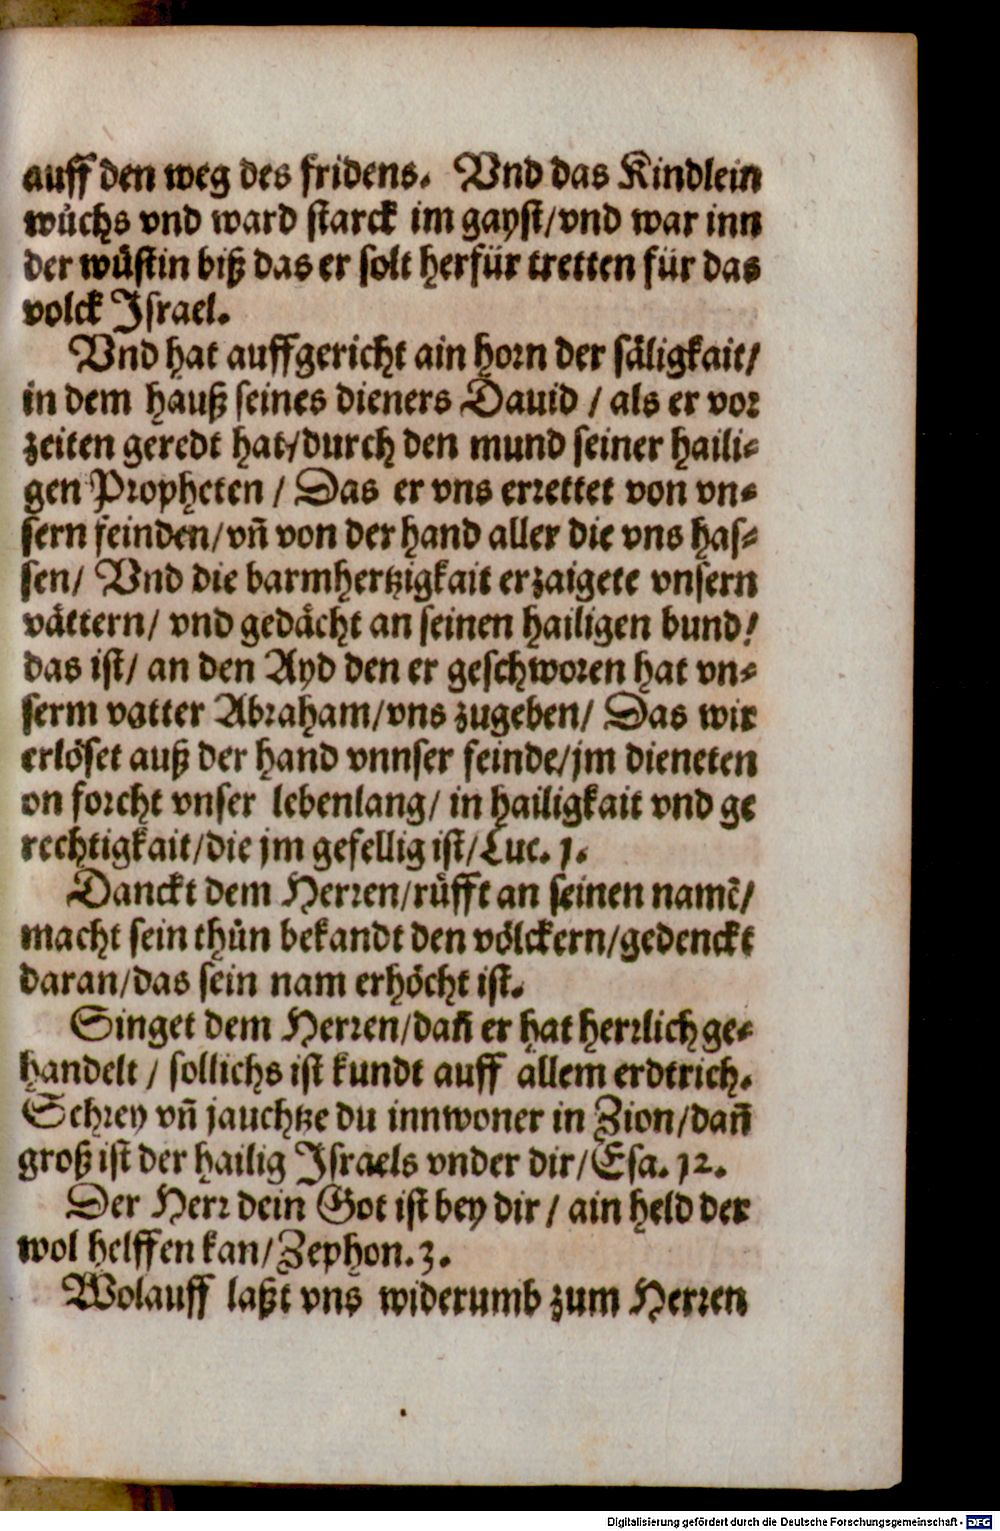 auff den weg des fridens. Vnd das Kindlein
wůchs vnd ward starck im gayst/vnd war inn
der wůstin biß das er solt herfür tretten für das
volck Israel.
Vnd hat auffgericht ain horn der säligkait/
in dem hauß seines dieners Dauid / als er vor
zeiten geredt hat/durch den mund seiner haili⸗
gen Propheten / Das er vns errettet von vn⸗
sern feinden/vñ von der hand aller die vns has⸗
sen/ Vnd die barmhertzigkait erzaigete vnsern
vättern/ vnd gedächt an seinen hailigen bund/
das ist/ an den Ayd den er geschworen hat vn⸗
serm vatter Abraham/vns zugeben/ Das wir
erlöset auß der hand vnnser feinde/jm dieneten
on forcht vnser lebenlang/ in hailigkait vnd ge
rechtigkait/die jm gefellig ist/Luc. 1.
Danckt dem Herren/růfft an seinen namẽ/
macht sein thůn bekandt den völckern/gedenckt
daran/das sein nam erhöcht ist.
Singet dem Herren/dañ er hat herrlich ge⸗
handelt / sollichs ist kundt auff allem erdtrich.
Schrey vñ jauchtze du innwoner in Zion/dañ
groß ist der hailig Israels vnder dir/Esa. 12.
Der Herr dein Got ist bey dir / ain held der
wol helffen kan/Zephon. 3.
Wolauff laßt vns widerumb zum Herren
Digitalisierung gefördert durch die Deutsche Forschungsgemeinschaft - DFG